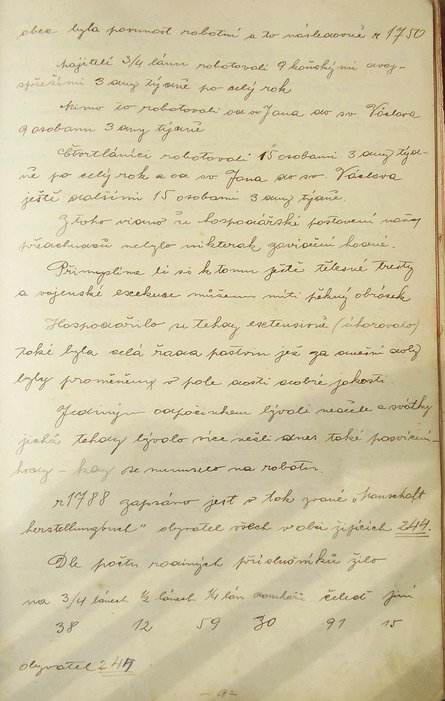 obce byla povinnost robotní a to následovně r 1750
majitelé 3/4 lánu robotovali 9 koňskými dvoj-
spřežími 3 dny týdně po celý rok
Mimo to robotovali od sv Jana do sv. Václava
9 osobami 3 dny týdně
Čtvrtláníci robotovali 15 osobami 3 dny týd-
ně po celý rok a od sv Jana do sv. Václava
ještě dalšími 15 osobami 3 dny týdně.
Z toho vidno že hospodářské postavení našich
předchůdců nebylo nikterak záviděni hodné.
Přimyslíme li si k tomu ještě tělesné tresty
a vojenské exekuce můžeme míti pěkný obrázek
Hospodařilo se tehdy extensivně (úhorovalo)
také byla celá řada pastvin jež za dnešní doby
byly proměněny v pole dosti dobré jakosti
Jediným odpočinkem bývali neděle a svátky
jichž tehdy bývalo více nežli dnes také posvícení
hody – kdy se nemuselo na robotu.
r 1788 zapsáno jest v tak zvané „Manschaft
herstellungbuch" obyvatel všech v obci žijících 244.
Dle počtu rodinných příslušníků žilo
na 3/4 lánech 1/2 lánech 1/4 lán domkáři čeledi jiní
38 12 59 30 91 15
obyvatel 245
– 92